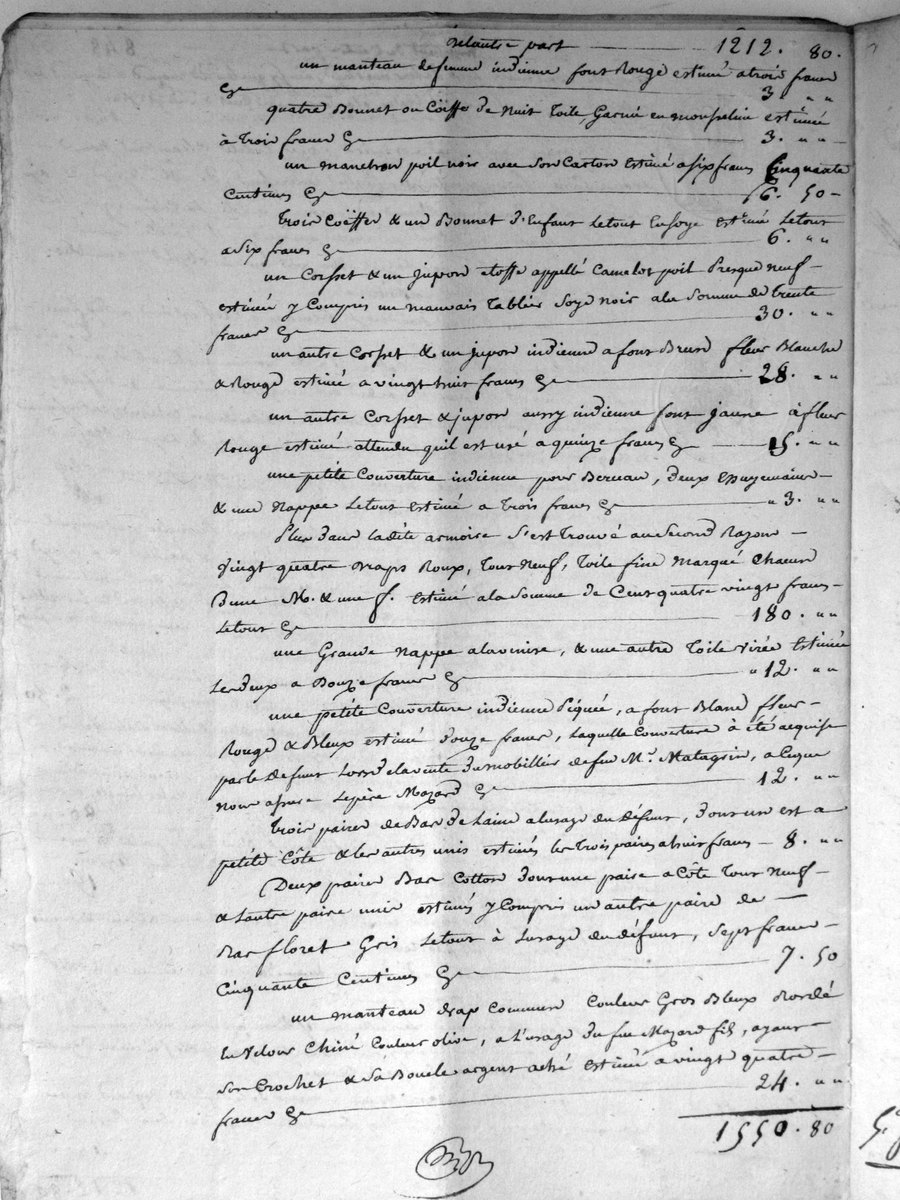 De l'autre part 1212. 80.
un manteau de femme indienne font Rouge estimé a trois francs
Cy 3. " "
quatre Bonnet ou Coëffe de nuit Toile, Garnie en mousseline estimée
à Trois francs Cy 3. " "
un manchon poil noir avec son Carton estimé a six francs Cinquante
Centimes Cy 6. 50
Trois Coëffes & un Bonnet d'Enfant le tout en soye estimé le tout
a six francs Cy 6. " "
un Corsset & un jupon etoffe appellé Camelot poil Presque neuf
estimée y Compris un mauvais tablier soye noir a la somme de trente
francs Cy 30. " "
un autre Corsset & un jupon indienne a font Brun fleur Blanche
& Rouge estimé a vingt huit francs Cy 28. " "
un autre Corsset & jupon aussy indienne font jaune à fleur
Rouge estimé attendu qu'il est usé a quinze francs Cy 15. " "
une petite Couverture indienne pour Berceau, deux Essuyemains
& une Nappe le tout estimé a Trois francs Cy " 3. " "
Plus dans la dite armoire s'est trouvé au second Rayon
Vingt quatre draps Roux, tout neuf, Toile fine marqué Chacun
D'une M. & une f. estimé a la somme de Cent quatre vingt francs
le tout Cy 180. " "
une Grande nappe a la venise, & une autre Toile virée Estimée
les deux a Douze francs Cy " 12. " "
une petite Couverture indienne Piquée, a font Blanc fleur
Rouge & Bleux estimé douze francs, laquelle Couverture à été acquise
par le defunt lors de la vente du mobillier de feu Mr. Matagrin, a ce que
nous assure le père Mazard Cy 12. " "
Trois paires de Bas de Laine a l'usage du défunt, dont un est a
petite Côte & les autres unis estimés les trois paires a huit francs 8. " "
Deux paires Bas Cotton dont une paire a Côte tout neuf
& l'autre paire unie estimés y Compris un autre paire de
Bas floret Gris le tout à l'usage du défunt, sept francs
Cinquante Centimes Cy 7. 50
un manteau drap Commun Couleur Gros Bleux Bordé
en Velour Chiné Couleur olive, a l'usage du feu Mazard fils, ayant
son Crochet & sa Boucle argent aché estimé a vingt quatre
francs Cy 24. " "
1550. 80